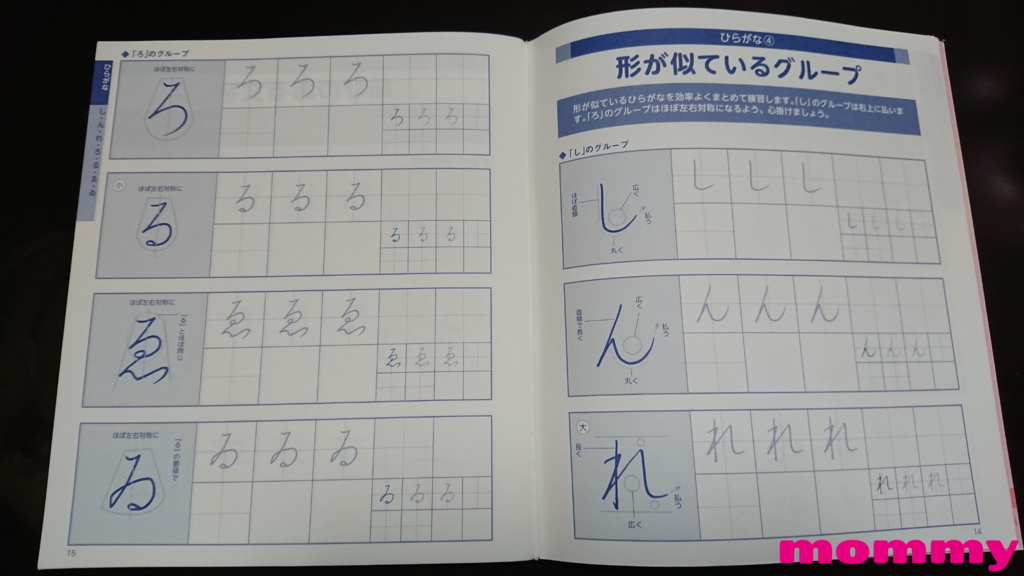 ひらがな④
形が似ているグループ
形が似ているひらがなを効率よくまとめて練習します。「し」のグループは右上に払いま
す。「ろ」のグループはほぼ左右対称になるよう、心掛けましょう。
◆「し」のグループ
ほぼ直線
広く
払う
丸く
し
し し し
し し し
直線で長く
広く
払う
丸く
ん
ん ん ん
ん ん ん
大
長く
払う
広く
れ
れ れ れ
れ れ れ
14
ひらがな
し・ん・れ・ろ・る・ゑ・ゐ
◆「ろ」のグループ
ほぼ左右対称に
ろ
ろ ろ ろ
ろ ろ ろ
小
ほぼ左右対称に
る
る る る
る る る
ほぼ左右対称に
「る」とほぼ同じ
ゑ
ゑ ゑ ゑ
ゑ ゑ ゑ
ほぼ左右対称に
「る」の要領で
ゐ
ゐ ゐ ゐ
ゐ ゐ ゐ
15
mommy